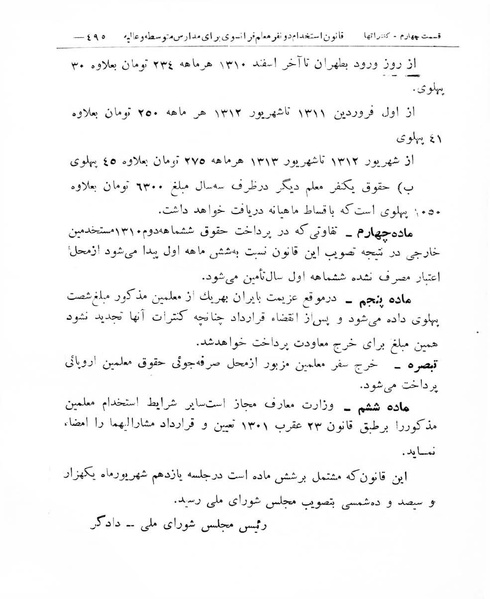 قسمت چهارم - کنتراتها قانون استخدام دو نفر معلم فرانسوی برای مدارس متوسطه و عالیه —٤٩٥
از روز ورود بطهران تا آخر اسفند ١٣١٠ هر ماهه ٢٣٤ تومان بعلاوه ٣٠
پهلوی.
از اول فروردین ١٣١١ تا شهریور ١٣١٢ هر ماهه ٢٥٠ تومان بعلاوه
٤١ پهلوی
از شهریور ١٣١٢ تا شهریور ١٣١٣ هر ماهه ٢٧٥ تومان بعلاوه ٤٥ پهلوی
ب) حقوق یکنفر معلم دیگر در ظرف سه سال مبلغ ٦٣٠٠ تومان بعلاوه
١٠٥٠ پهلوی است که باقساط ماهیانه دریافت خواهد داشت.
ماده چهارم ــ تفاوتی که در پرداخت حقوق ششماهه دوم ١٣١٠ مستخدمین
خارجی در نتیجه تصویب این قانون نسبت به شش ماهه اول پیدا می شود از محل
اعتبار مصرف نشده ششماهه اول سال تأمین می شود.
ماده پنجم ــ در موقع عزیمت بایران بهریك از معلمین مذکور مبلغ شصت
پهلوی داده می شود و پس از انقضاء قرارداد چنانچه کنترات آنها تجدید نشود
همین مبلغ برای خرج معاودت پرداخت خواهد شد.
تبصره ــ خرج سفر معلمین مزبور از محل صرفه جوئی حقوق معلمین اروپائی
پرداخت می شود.
ماده ششم ــ وزارت معارف مجاز است سایر شرایط استخدام معلمین
مذکور را برطبق قانون ٢٣ عقرب ١٣٠١ تعیین و قرارداد مشارالیهما را امضاء
نمـاید.
این قانون که مشتمل بر شش ماده است در جلسه یازدهم شهریور ماه یکهزار
و سیصد و ده شمسی بتصویب مجلس شورای ملی رسید.
رئیس مجلس شورای ملی ــ دادگر